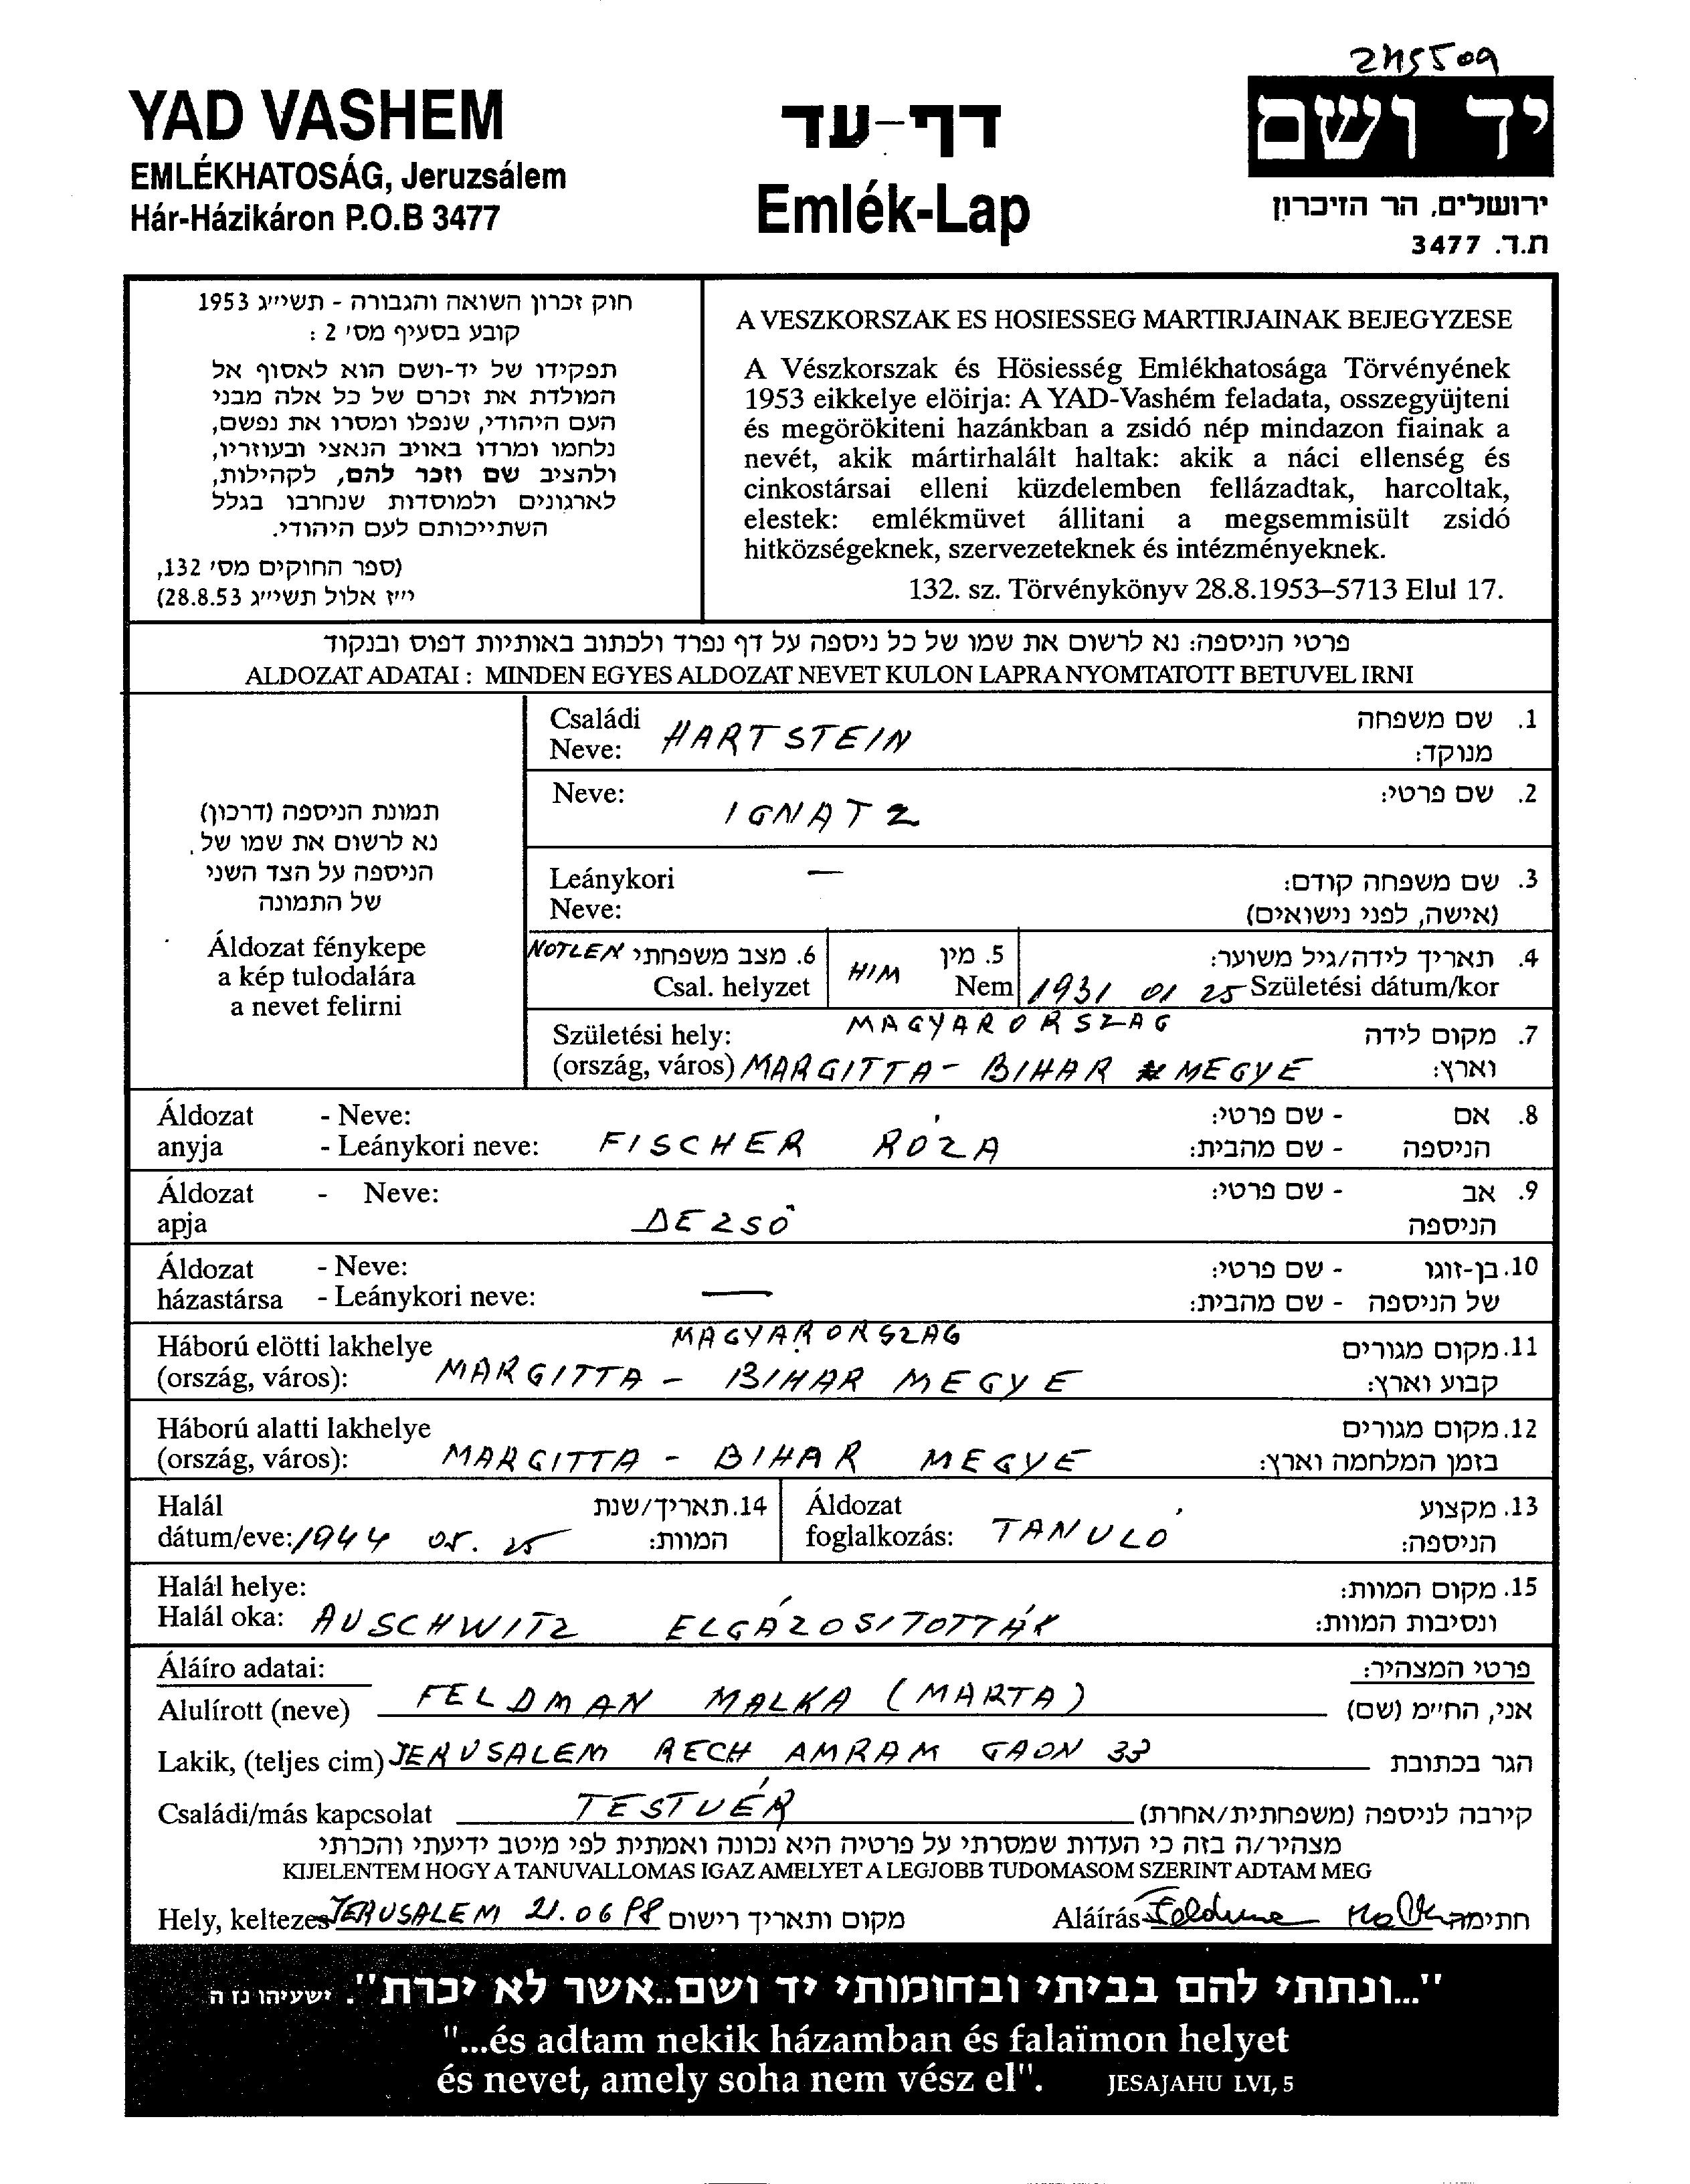 2115509
YAD VASHEM
EMLÉKHATOSÁG, Jeruzsálem
Hár-Házikáron P.O.B 3477
דף-עד
Emlék-Lap
יד ושם
ירושלים, הר הזיכרון
ת.ד. 3477
חוק זכרון השואה והגבורה - תשי״ג 1953
קובע בסעיף מס׳ 2 :
תפקידו של יד-ושם הוא לאסוף אל
המולדת את זכרם של כל אלה מבני
העם היהודי, שנפלו ומסרו את נפשם,
נלחמו ומרדו באויב הנאצי ובעוזריו,
ולהציב שם וזכר להם, לקהילות,
לארגונים ולמוסדות שנחרבו בגלל
השתייכותם לעם היהודי.
(ספר החוקים מס׳ 132,
י״ז אלול תשי״ג 28.8.53)
A VESZKORSZAK ES HOSIESSEG MARTIRJAINAK BEJEGYZESE
A Vészkorszak és Hösiesség Emlékhatosága Törvényének
1953 eikkelye elöirja: A YAD-Vashém feladata, osszegyüjteni
és megörökiteni hazánkban a zsidó nép mindazon fiainak a
nevét, akik mártirhalált haltak: akik a náci ellenség és
cinkostársai elleni küzdelemben fellázadtak, harcoltak,
elestek: emlékmüvet állitani a megsemmisült zsidó
hitközségeknek, szervezeteknek és intézményeknek.
132. sz. Törvénykönyv 28.8.1953–5713 Elul 17.
פרטי הניספה: נא לרשום את שמו של כל ניספה על דף נפרד ולכתוב באותיות דפוס ובנקוד
ALDOZAT ADATAI : MINDEN EGYES ALDOZAT NEVET KULON LAPRA NYOMTATOTT BETUVEL IRNI
תמונת הניספה (דרכון)
נא לרשום את שמו של
הניספה על הצד השני
של התמונה
Áldozat fénykepe
a kép tulodalára
a nevet felirni
Családi HARTSTEIN 1. שם משפחה
Neve: מנוקד:
Neve: IGNATZ 2. שם פרטי:
Leánykori — 3. שם משפחה קודם:
Neve: (אישה, לפני נישואים)
NOTLEN 6. מצב משפחתי HIM 5. מין 4. תאריך לידה/גיל משוער:
Csal. helyzet Nem 1931 01 25 Születési dátum/kor
Születési hely: MAGYARORSZAG 7. מקום לידה
(ország, város) MARGITTA - BIHAR MEGYE וארץ:
Áldozat - Neve: - שם פרטי: 8. אם
anyja - Leánykori neve: FISCHER RÓZA - שם מהבית: הניספה
Áldozat - Neve: - שם פרטי: 9. אב
apja DEZSÖ הניספה
Áldozat - Neve: - שם פרטי: 10. בן-זוגו
házastársa - Leánykori neve: — - שם מהבית: של הניספה
Háború elötti lakhelye MAGYARORSZAG 11. מקום מגורים
(ország, város): MARGITTA - BIHAR MEGYE קבוע וארץ:
Háború alatti lakhelye 12. מקום מגורים
(ország, város): MARGITTA - BIHAR MEGYE בזמן המלחמה וארץ:
Halál 14. תאריך/שנת Áldozat 13. מקצוע
dátum/eve: 1944 05. 25 המוות: foglalkozás: TANULÓ הניספה:
Halál helye: 15. מקום המוות:
Halál oka: AUSCHWITZ ELGÁZOSITOTTÁK ונסיבות המוות:
Áláíro adatai: פרטי המצהיר:
Alulírott (neve) FELDMAN MALKA (MARTA) אני, הח״מ (שם)
Lakik, (teljes cim) JERUSALEM RECH AMRAM GAON 33 הגר בכתובת
Családi/más kapcsolat TESTVÉR קירבה לניספה (משפחתית/אחרת)
מצהיר/ה בזה כי העדות שמסרתי על פרטיה היא נכונה ואמתית לפי מיטב ידיעתי והכרתי
KIJELENTEM HOGY A TANUVALLOMAS IGAZ AMELYET A LEGJOBB TUDOMASOM SZERINT ADTAM MEG
Hely, keltezes JERUSALEM 21.06 98 מקום ותאריך רישום Aláírás Feldman Malka חתימה
"...ונתתי להם בביתי ובחומותי יד ושם..אשר לא יכרת". ישעיהו נז ה
"...és adtam nekik házamban és falaïmon helyet
és nevet, amely soha nem vész el". JESAJAHU LVI, 5